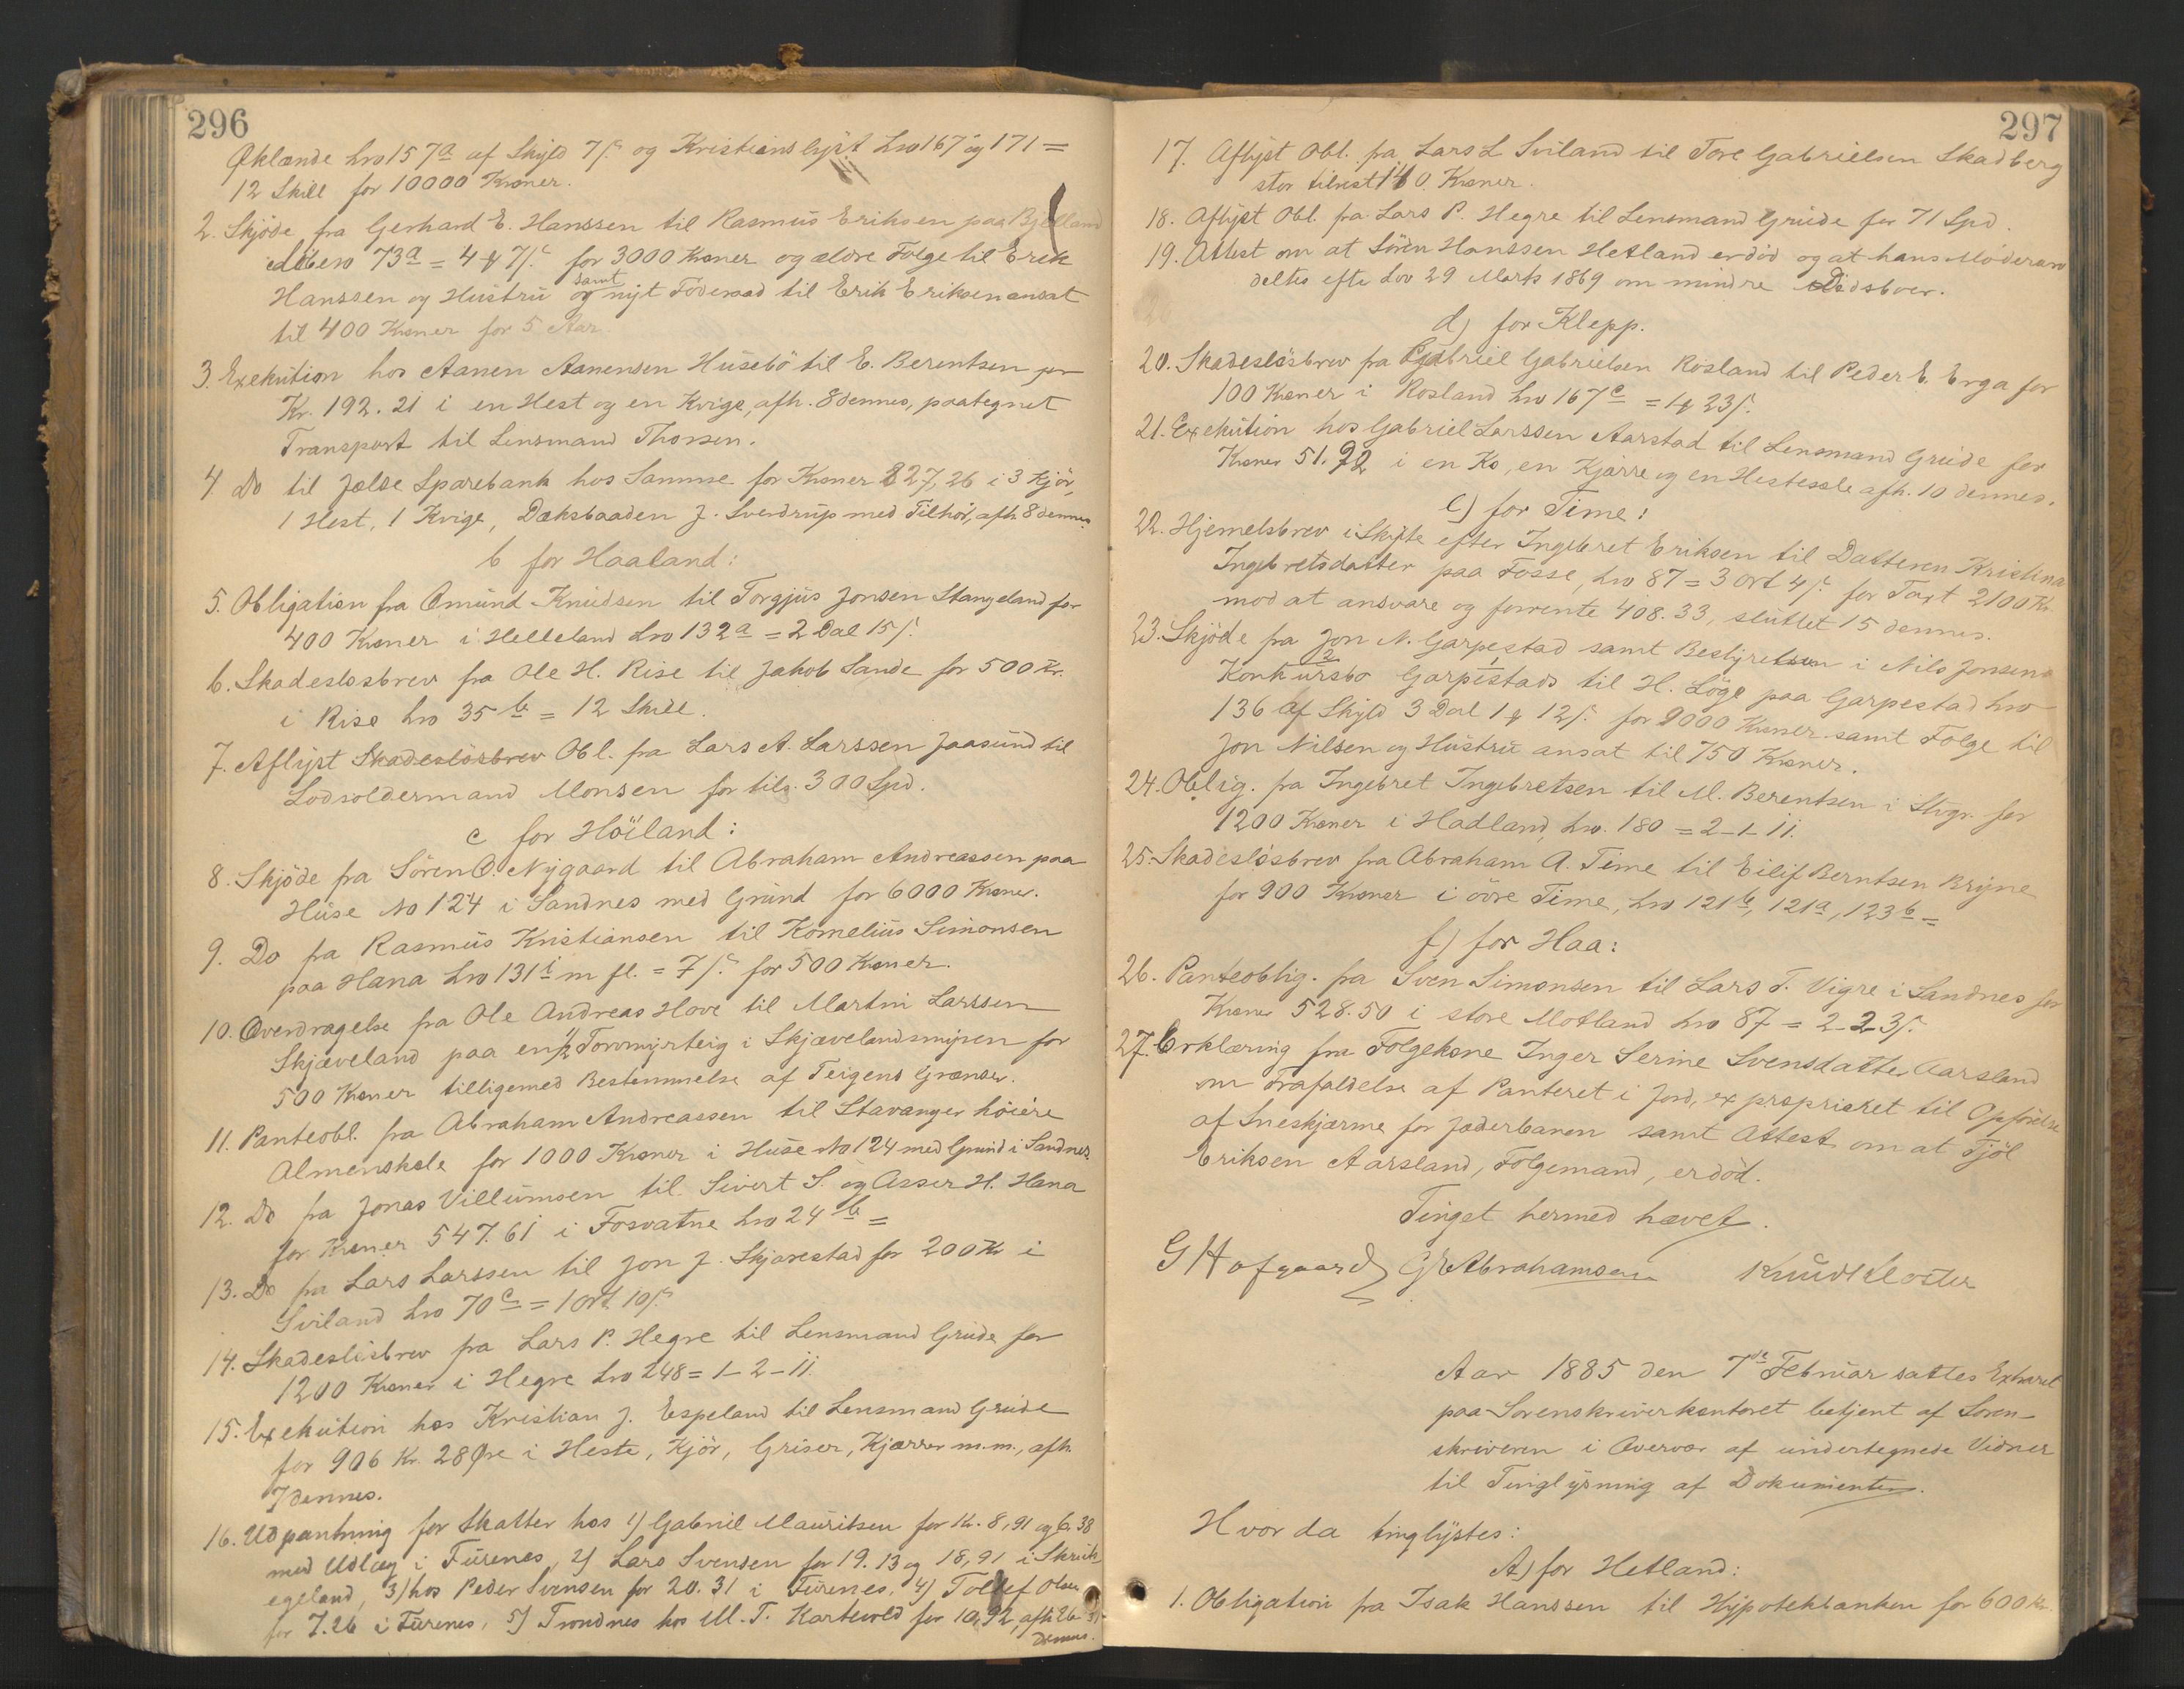 296
Öklænde Lno 157a af Skyld 7 ſ. og Kristianslyst Lno 167 og 171 =
12 Skill for 10000 Kroner.
2. Skjöde fra Gerhard E. Hanssen til Rasmus Eriksen paa Bjelland
Lno 73a = 4 ꝟ 7 ſ. for 3000 Kroner og ældre Følge til Erik
Hanssen og Hustru samt nyt Föderaad til Erik Eriksen ansat
til 400 Kroner for 5 Aar.
3. Exekution hos Aanen Aanensen Husebö til E. Berentsen for
Kr. 192.21 i en Hest og en Kvige, afh. 8 dennes, paategnet
Transport til Lensmand Thorsen.
4. Do til Jælse Sparebank hos Samme for Kroner 227,26 i 3 Kjör,
1 Hest, 1 Kvige, Dæksbaaden J. Sverdrup med Tilhör, afh. 8 dennes.
b for Haaland:
5. Obligation fra Omund Knudsen til Torgjus Jonsen Stangeland for
400 Kroner i Helleland Lno 132a = 2 Dal 15 ſ.
6. Skadeslosbrev fra Ole H. Rise til Jakob Sande for 500 Kr.
i Rise Lno 35 b = 12 Skill.
7. Aflyst Skadeslösbrev Obl. fra Lars A. Larssen Jaasund til
Lodsoldermand Monsen for tils. 300 Spd.
c for Höiland:
8. Skjöde fra Sören O. Nygaard til Abraham Andreassen paa
Huse No 124 i Sandnes med Grund for 6000 Kroner.
9. Do fra Rasmus Kristiansen til Kornelius Simonsen
paa Hana Lno 131 i m fl. = 7 ſ. for 500 Kroner.
10. Overdragelse fra Ole Andreas Hove til Martin Larssen
Skjæveland paa en 1/2 Torvmyrteig i Skjævelandsmyren for
500 Kroner tilligemed Bestemmelse af Teigens Grænser.
11. Panteobl. fra Abraham Andreassen til Stavanger höiere
Almenskole for 1000 Kroner i Huse No 124 med Grund i Sandnes
12. Do fra Jonas Villumsen til Sivert S. og Asser H. Hana
for Kroner 547.61 i Fosvatne Lno 24 b =
13. Do fra Lars Larssen til Jon J. Skjærestad for 200 Kr i
Sviland Lno 70 c = 1 Ort 10 ſ.
14. Skadeslösbrev fra Lars P. Hegre til Lensmand Grude for
1200 Kroner i Hegre Lno 248 = 1-2-11.
15. Exekution hos Kristian J. Espeland til Lensmand Grude
for 906 Kr. 28 Øre i Heste, Kjör, Griser, Kjærrer m.m., afh.
7 dennes.
16. Udpantning for Skatter hos 1) Gabriel Mauritsen for Kr. 8,91 og 6.38
med Udlæg i Furenes, 2) Lars Svensen for 19.13 og 18,91 i Skruk-
egeland, 3) hos Peder Svensen for 20.31 i Furenes, 4) Tollef Olsen
for 7.26 i Furenes, 5) Trondnes hos M. T. Kartevold for 10,92, afh 26
dennes.
297
17. Aflyst Obl. fra Lars L Sviland til Tore Gabrielsen Skadberg
stor tilrest 140 Kroner.
18. Aflyst Obl. fra Lars P. Hegre til Lensmand Grude for 71 Spd.
19. Attest om at Sören Hanssen Hetland er död og at hans Möderarv
deltes efter Lov 29 Marts 1869 om mindre Dödsboer.
d) for Klepp.
20. Skadeslösbrev fra Gabriel Gabrielsen Rosland til Peder E. Erga for
100 Kroner i Rosland Lno 167 c = 1 ꝟ 23 ſ.
21. Exekution hos Gabriel Larssen Aarstad til Lensmand Grude for
Kroner 51.92 i en Ko, en Kjærre og en Hestesele afh. 10 dennes.
e) for Time:
22. Hjemelsbrev i Skifte efter Ingebret Eriksen til Datteren Kristina
Ingebretsdatter paa Fosse, Lno 87 = 3 Ort 4 ſ. for Taxt 2100 Kr.
mod at ansvare og forrente 408.33, sluttet 15 dennes.
23. Skjöde fra Jon N. Garpestad samt Bestyrelsen i Nils Jonsens
Konkursbo Garpestads til H. Löge paa Garpestad Lno
136 af Skyld 3 Dal 1 ꝟ 12 ſ. for 9000 Kroner samt Følge til
Jon Nilsen og Hustru ansat til 750 Kroner.
24. Oblig. fra Ingebret Ingebretsen til M. Berentsen i Stvgr. for
1200 Kroner i Hadland, Lno. 180 = 2-1-11.
25. Skadeslösbrev fra Abraham A. Time til Eilif Berntsen Bryne
for 900 Kroner i övre Time, Lno 121 b, 121a, 123 b =
f) for Haa:
26. Panteoblig. fra Sven Simonsen til Lars T. Vigre i Sandnes for
Kroner 528.50 i store Motland Lno 87 = 2-2-3 ſ.
27. Erklæring fra Følgekone Inger Serine Svensdatter Aarsland
om Frafaldelse af Panteret i Jord, exproprieret til Opførelse
af Sneskjærme for Jæderbanen samt Attest om at Tjöl
Eriksen Aarsland, Følgemand, er död.
Tinget hermed hævet.
G Hofgaard G E Abrahamsen Knud Kloster
Aar 1885 den 7de Februar sattes Extraret
paa Sorenskriverkontoret betjent af Soren-
skriveren i Overvær af undertegnede Vidner
til Tinglysning af Dokumenter.
Hvorda tinglystes:
A) for Hetland:
1. Obligation fra Isak Hanssen til Hypotekbanken for 600 Kr.